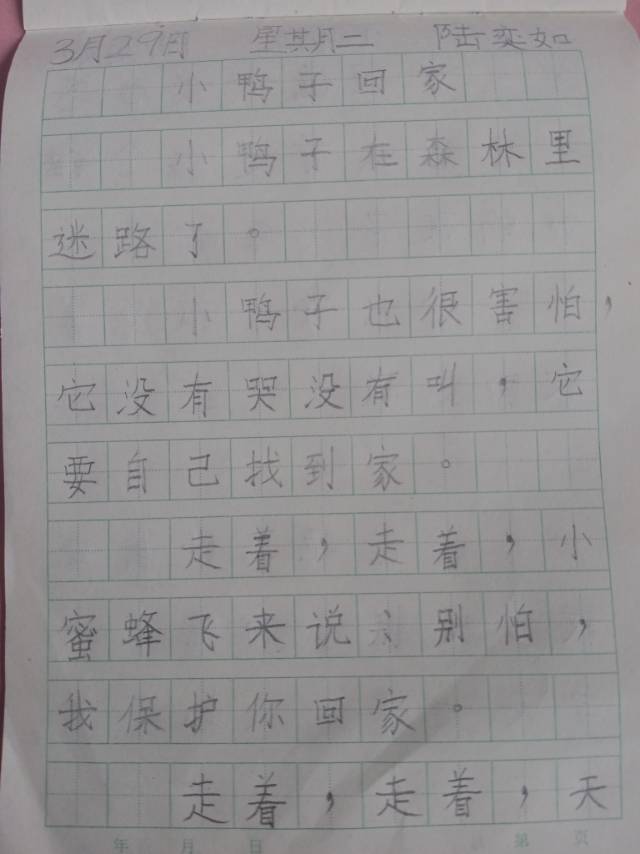 3月29日 星其月二 陆奕如
小鸭子回家
小鸭子在森林里
迷路了。
小鸭子也很害怕，
它没有哭没有叫，它
要自己找到家。
走着，走着，小
蜜蜂飞来说：别怕，
我保护你回家。
走着，走着，天
年 月 日 第 页